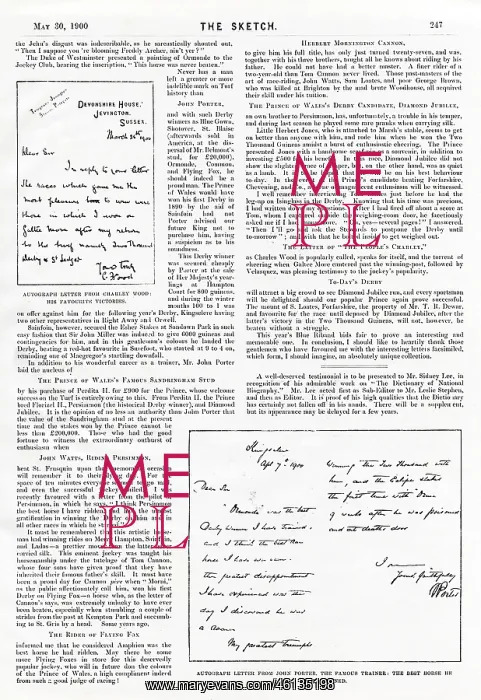 MAY 30, 1900
THE SKETCH.
247
the John's disgust was indescribable, as he sarcastically shouted out,
"Then I suppose you're blooming Freddy Archer, ain't yer?"
The Duke of Westminster presented a painting of Ormonde to the
Jockey Club, bearing the inscription, "This horse was never beaten."
DEVONSHIRE HOUSE,
JEVINGTON,
SUSSEX.
March 30th 1900
Dear Sir
In reply to your letter
The races which gave me the
most pleasure to win were
those on which I rode
Galtee More after my return
to the turf namely Two Thousand
Derby & St Leger
Yours Truly
C Wood
AUTOGRAPH LETTER FROM CHARLEY WOOD:
HIS FAVOURITE VICTORIES.
Never has a man
left a greater or more
indelible mark on Turf
history than
JOHN PORTER,
and with such Derby
winners as Blue Gown,
Shotover, St. Blaise
(afterwards sold in
America, at the dis-
persal of Mr. Belmont's
stud, for £20,000),
Ormonde, Common,
and Flying Fox, he
should indeed be a
proud man. The Prince
of Wales would have
won his first Derby in
1890 by the aid of
Sainfoin had not
Porter advised our
future King not to
purchase him, having
a suspicion as to his
soundness.
This Derby winner
was secured cheaply
by Porter at the sale
of Her Majesty's year-
lings at Hampton
Court for 800 guineas,
and during the winter
months 100 to 1 was
on offer against him for the following year's Derby, Kingsclere having
two other representatives in Right Away and Orwell.
Sainfoin, however, secured the Esher Stakes at Sandown Park in such
easy fashion that Sir John Miller was induced to give 6000 guineas and
contingencies for him, and in this gentleman's colours he landed the
Derby, beating a red-hot favourite in Surefoot, who started at 9 to 4 on,
reminding one of Macgregor's startling downfall.
In addition to his wonderful career as a trainer, Mr. John Porter
laid the nucleus of
THE PRINCE OF WALES'S FAMOUS SANDRINGHAM STUD
by his purchase of Perdita II. for £900 for the Prince, whose welcome
success on the Turf is entirely owing to this. From Perdita II. the Prince
bred Florizel II., Persimmon (the historical Derby winner), and Diamond
Jubilee. It is the opinion of no less an authority than John Porter that
the value of the Sandringham stud at the present
time and the stakes won by the Prince cannot be
less than £200,000. Those who had the good
fortune to witness the extraordinary outburst of
enthusiasm when
JOHN WATTS, RIDING PERSIMMON,
beat St. Frusquin upon that memorable occasion
will remember it to their dying day. For
space of ten minutes everyone
and even the successful jockey
recently favoured with a letter from the pilot
Persimmon, in which he says, "I think Persimmon
the best horse I have ridden,
gratification in winning the Derby on him than in
all other races in which he
It must be remembered that this artistic
man had winning rides on Merry Hampton, Sainfoin,
and Ladas—a prettier mover than the latter
carried silk. This eminent jockey was taught his
horsemanship under the tutelage of Tom Cannon,
whose four sons have given proof that they have
inherited their famous father's skill. It must have
been a proud day for Cannon père when "Morny,"
as the public affectionately call him, won his first
Derby on Flying Fox—a horse who, as the letter of
Cannon's says, was extremely unlucky to have ever
been beaten, especially when stumbling a couple of
strides from the post at Kempton Park and succumb-
ing to St. Gris by a head. Some years ago,
THE RIDER OF FLYING FOX
informed me that he considered Amphion was the
best horse he had ridden. May there be some
more Flying Foxes in store for this deservedly
popular jockey, who will in future don the colours
of the Prince of Wales, a high compliment indeed
from such a good judge of racing!
HERBERT MORNINGTON CANNON,
to give him his full title, has only just turned twenty-seven, and was,
together with his three brothers, taught all he knows about riding by his
father. He could not have had a better master. A finer rider of a
two-year-old than Tom Cannon never lived. Those past-masters of the
art of race-riding, John Watts, Sam Loates, and poor George Brown,
who was killed at Brighton by the mad brute Woodhouse, all acquired
their skill under his tuition.
THE PRINCE OF WALES'S DERBY CANDIDATE, DIAMOND JUBILEE,
an own brother to Persimmon, has, unfortunately, a trouble in his temper,
and during last season he played some rare pranks when carrying silk.
Little Herbert Jones, who is attached to Marsh's stable, seems to get
on better than anyone with him, and rode him when he won the Two
Thousand Guineas amidst a burst of enthusiastic cheering. The Prince
presented Jones with a handsome
investing £500 for his benefit
show the slightest
as a lamb. It
to-day. In the
Chevening, and
I well remember
leg-up on
I had written
Tom, whom I
asked me if I
"Then I'll
to-morrow";
THE LETTER OF "THE PEOPLE'S CHARLEY,"
as Charles Wood is popularly called, speaks for itself, and the torrent of
cheering when Galtee More cantered past the winning-post, followed by
Velasquez, was pleasing testimony to the jockey's popularity.
TO-DAY'S DERBY
will attract a big crowd to see Diamond Jubilee run, and every sportsman
will be delighted should our popular Prince again prove successful.
This year's Blue Riband bids fair to prove an interesting and
memorable one. In conclusion, I should like to heartily thank those
gentlemen who have favoured me with the interesting letters facsimiled,
which form, I should imagine, an absolutely unique collection.
A well-deserved testimonial is to be presented to Mr. Sidney Lee, in
recognition of his admirable work on "The Dictionary of National
Biography." Mr. Lee acted first as Sub-Editor to Mr. Leslie Stephen,
and then as Editor. It is proof of his high qualities that the Dictionary
has certainly not fallen off in his hands. There will be a supplement,
but its appearance may be delayed for a few years.
Kingsclere
Apl 7th 1900
Dear Sir
Ormonde was the best
Derby winner I have trained,
and I think the best race
horse I have ever seen.
the greatest disappointment
I have experienced was the
day I discovered he was
a roarer
My greatest triumphs
winning the Two Thousand with
him, and the Eclipse Stakes
the first time with Orme
9 weeks after he was poisoned
and at death's door
I remain
Yours faithfully
J Porter
AUTOGRAPH LETTER FROM JOHN PORTER, THE FAMOUS TRAINER: THE BEST HORSE HE
ME
PL
ME
PL
www.maryevans.com/46135188